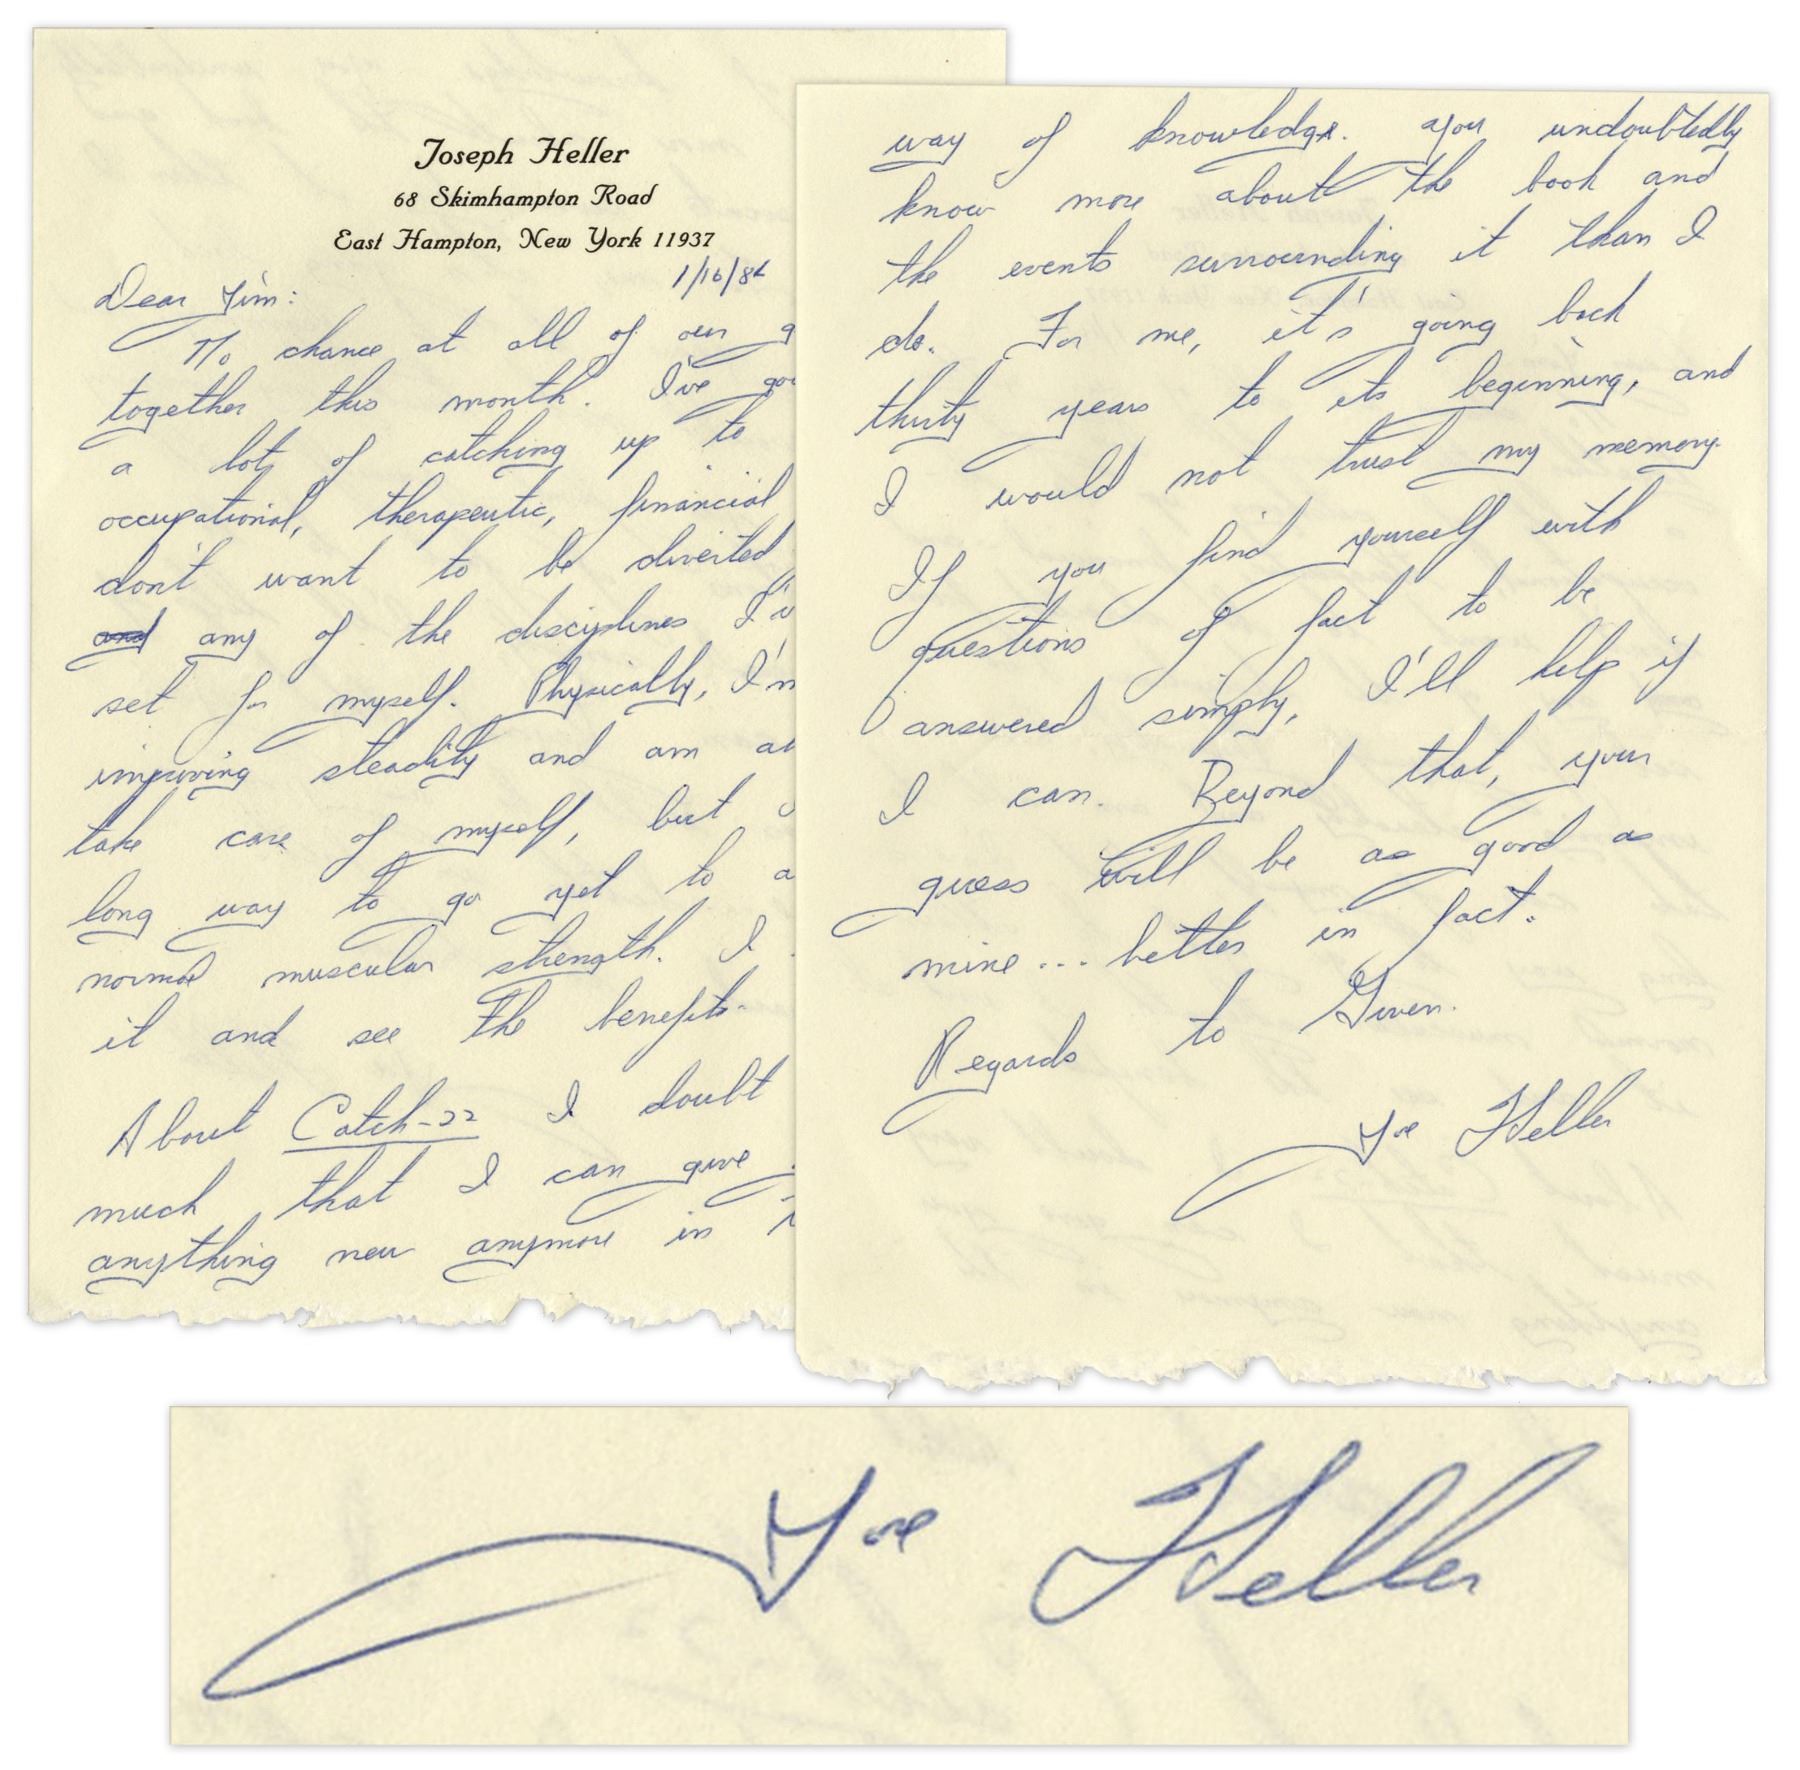 Joseph Heller
68 Skimhampton Road
East Hampton, New York 11937
1/16/84
Dear Jim:
No chance at all of our g
together this month. I've go
a lot of catching up to
occupational, therapeutic, financial
don't want to be diverted
and any of the disciplines I'v
set for myself. Physically, I'm
improving steadily and am ab
take care of myself, but
long way to go yet to a
normal muscular strength. I
it and see the benefits.
About Catch-22 I doubt
much that I can give
anything new anymore in
way of knowledge. You undoubtedly
know more about the book and
the events surrounding it than I
do. For me, it's going back
thirty years to its beginning, and
I would not trust my memory.
If you find yourself with
questions of fact to be
answered simply, I'll help if
I can. Beyond that, your
guess will be as good as
mine... better in fact.
Regards to Gwen.
Joe Heller
Joe Heller